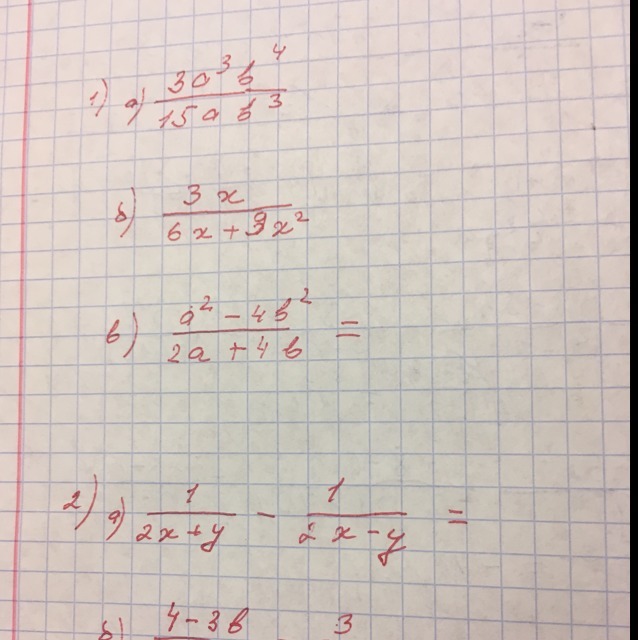 1) а) 3a³b⁴ / 15ab³
б) 3x / 6x + 9x²
в) a² - 4b² / 2a + 4b =
2) а) 1 / 2x+y - 1 / 2x-y =
б) 4-3b 3